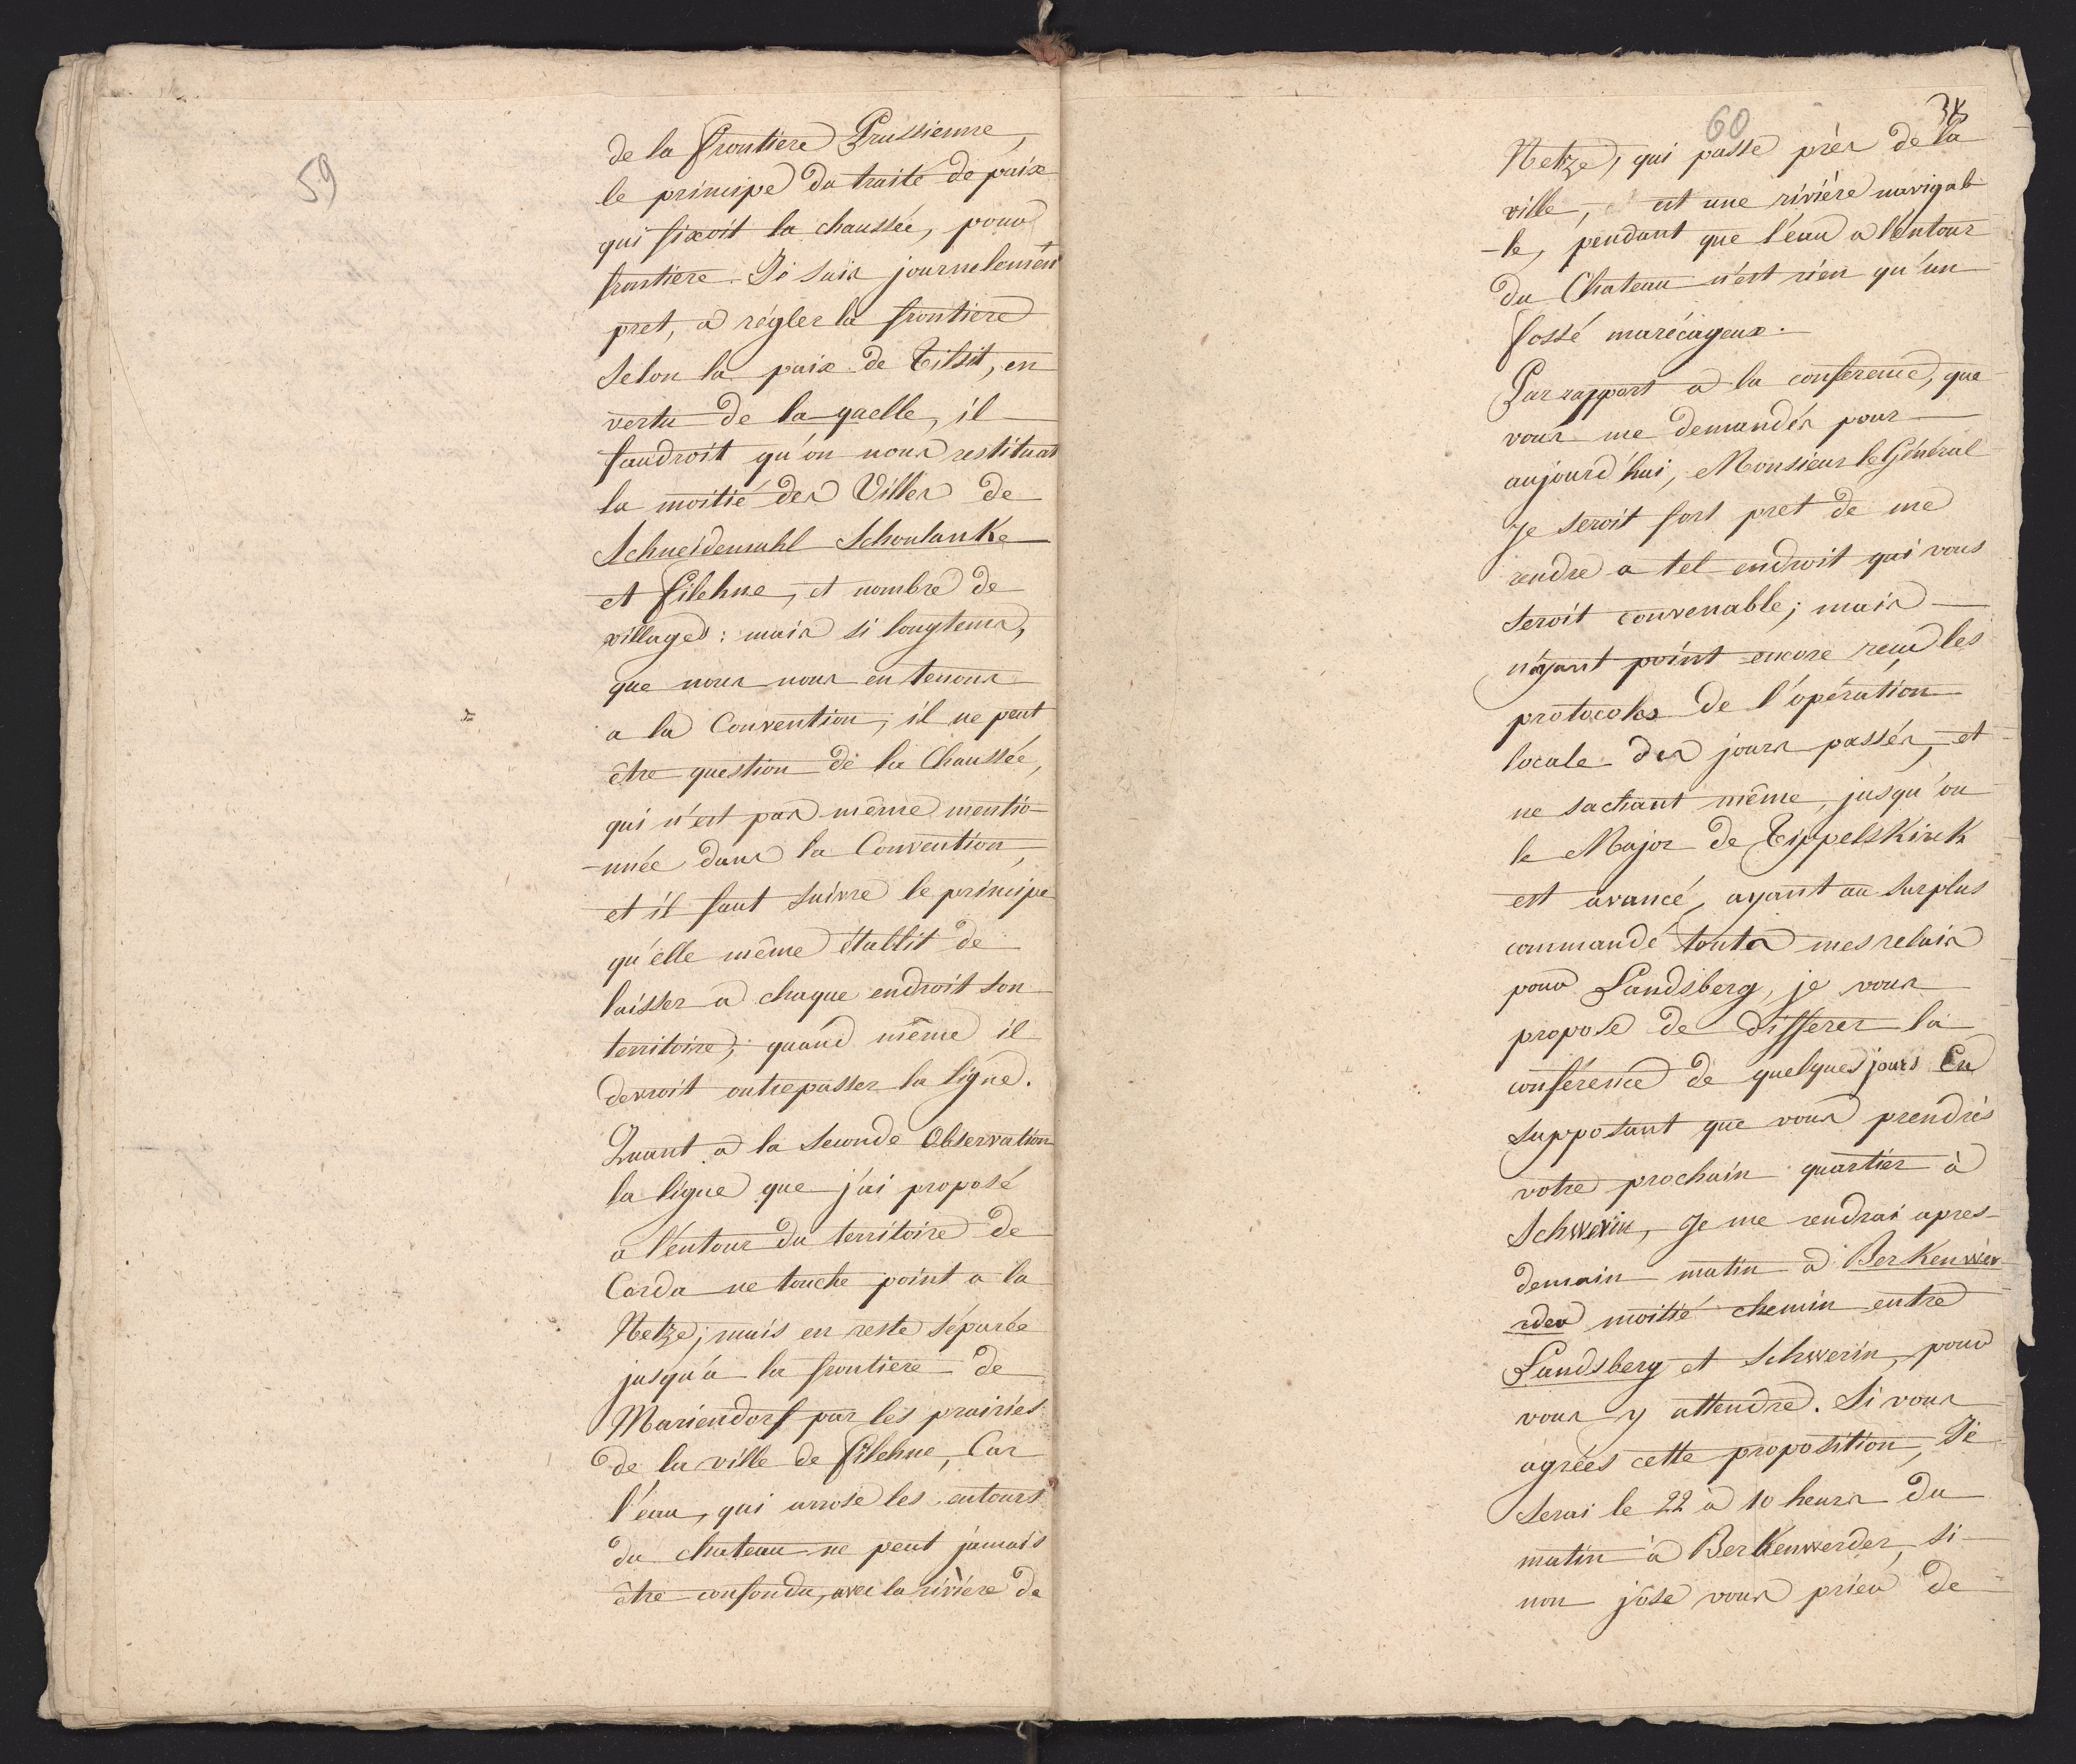 59
de la frontiere Prussienne,
le principe du traité de paix
qui fixoit la chaussée, pour
frontiere. Je suis journelement
pret, a régler la frontiere
selon la paix de Tilsit, en
vertu de la quelle, il
faudroit qu'on nous restituat
la moitié des Villes de
Schneidemuhl Schonlanke
et Filehne, et nombre de
villages: mais si longtems,
que nous nous en tenons
a la Convention, il ne peut
être question de la Chaussée,
qui n'est pas même mentio-
-nnée dans la Convention,
et il faut suivre le principe
qu'elle même établit de
laisser a chaque endroit son
territoire; quand même il
devroit outrepasser la ligne.
Quant a la seconde Observation
la ligne que j'ai proposé
a l'entour du territoire de
Corda ne touche point a la
Netze; mais en reste séparée
jusqu'a la frontiere de
Mariendorf par les prairies
de la ville de Filehne, Car
l'eau, qui arrose les entours
du chateau ne peut jamais
être confondu, avec la riviere de
60
Netze, qui passe près de la
ville, est une rivière navigab
-le, pendant que l'eau a l'entour
du Chateau n'est rien qu'un
fossé marécageux.
Par rapport a la conference, que
vous me demandés pour
aujourd'hui, Monsieur le Général
Je seroit fort pret de me
rendre a tel endroit qui vous
seroit convenable; mais
n'ayant point encore reçu les
protocoles de l'opération
locale des jours passés, et
ne sachant même, jusqu'ou
le Major de Tippelskirck
est avancé, ayant au surplus
commandé touts mes relais
pour Landsberg, je vous
propose de differer la
conférence de quelques jours En
supposant que vous prendrés
votre prochain quartier à
Schwerin, Je me rendrai apres-
demain matin a Berkenwer
rder moitié chemin entre
Landsberg et Schwerin, pour
vous y attendre. Si vous
agréés cette proposition, Je
serai le 22 à 10 heurs du
matin à Berkenwerder, si
non j'ose vous prier de